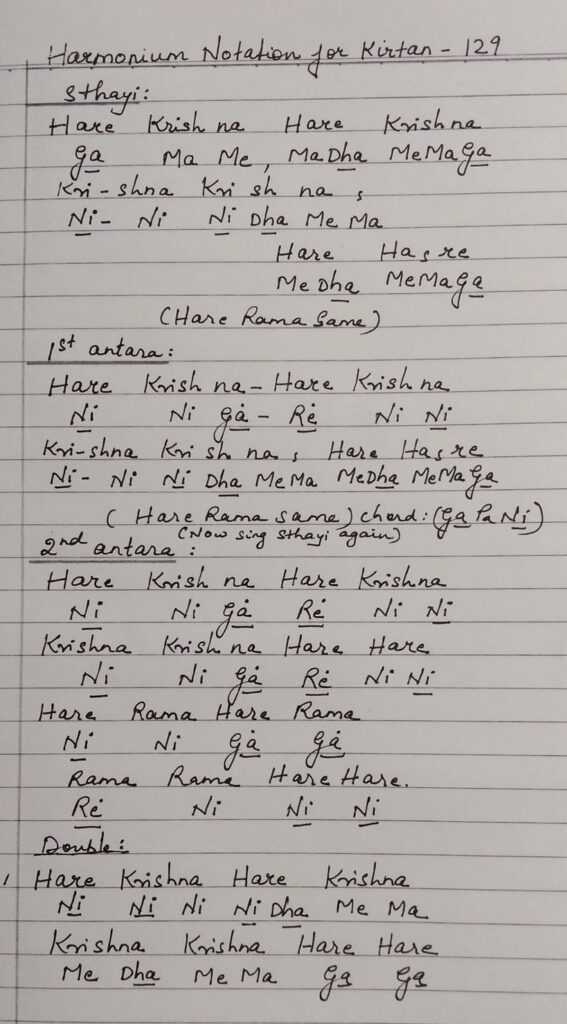 Harmonium Notation for Kirtan - 129
Sthayi:
Hare Krish na Hare Krishna
Ga Ma Me, MaDha MeMaGa
Kri-shna Kri sh na ,
Ni- Ni Ni Dha Me Ma
Hare Ha,re
MeDha MeMaGa
(Hare Rama Same)
1st antara:
Hare Krish na- Hare Krish na
Ni Ni Gȧ - Rė Ni Ni
Kri-shna Kri sh na, Hare Ha,re
Ni- Ni Ni Dha MeMa MeDha MeMaGa
(Hare Rama same) chord: (Ga Pa Ni)
(Now sing sthayi again)
2nd antara:
Hare Krish na Hare Krishna
Ni Ni Gȧ Rė Ni Ni
Krishna Krish na Hare Hare
Ni Ni Gȧ Rė Ni Ni
Hare Rama Hare Rama
Ni Ni Gȧ Gȧ
Rama Rama Hare Hare.
Rė Ni Ni Ni
Double:
Hare Krishna Hare Krishna
Ni Ni Ni Ni Dha Me Ma
Krishna Krishna Hare Hare
Me Dha Me Ma Ga Ga